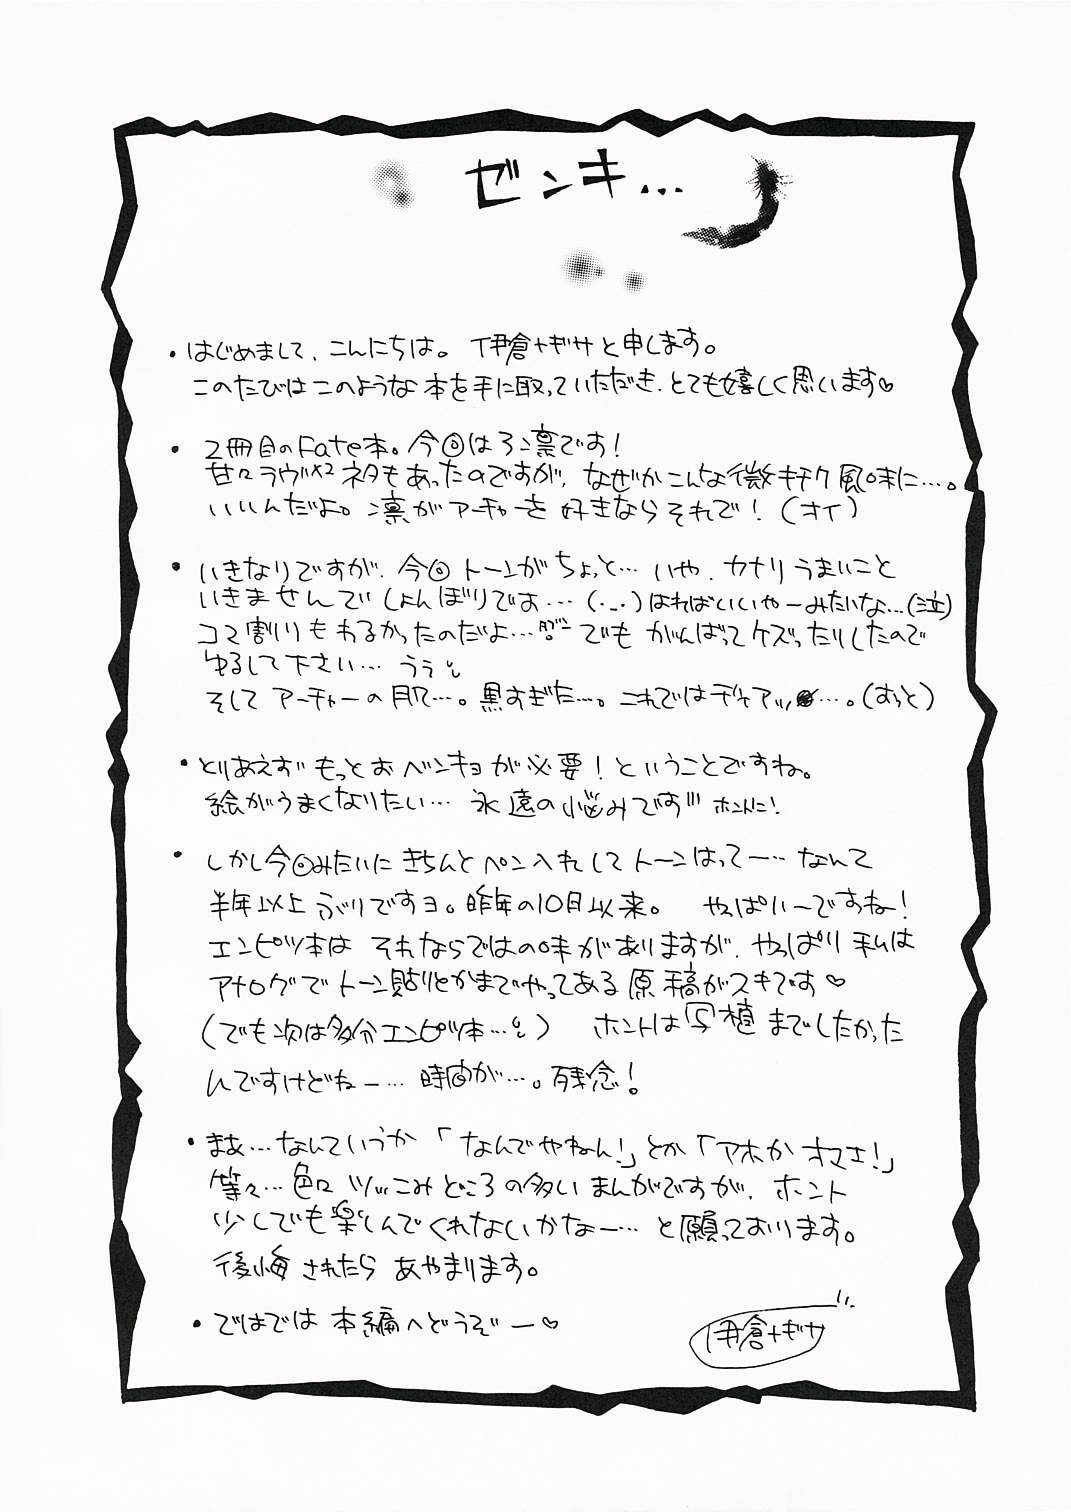 ゼンキ…
・はじめまして、こんにちは。 伊倉ナギサと申します。
このたびはこのような本を手に取っていただき、とても嬉しく思います♡
・2冊目のFate本。今回は弓凛です!
甘々ラヴ×2ネタもあったのですが、なぜかこんな微キチク風味に…。
いいんだよ。凛がアーチャーを好きならそれで!(オイ)
・いきなりですが、今回トーンがちょっと…いや、カナリうまいこと
いきませんでしょんぼりです…(._.)はればいいやーみたいな…(泣)
コマ割りもわるかったのだよ… でもがんばってケズったりしたので
ゆるして下さい…うぅ
そしてアーチャーの肌…。黒すぎた…。これではディアッ…。(おっと)
・とりあえずもっとおベンキョが必要!ということですね。
絵がうまくなりたい… 永遠の悩みです ホントに!
・しかし今回みたいにきちんとペン入れしてトーンはってー…なんて
半年以上ぶりですヨ。昨年の10月以来。 やっぱいーですね!
エンピツ本はそれならではの味がありますが、やっぱり私は
アナログでトーン貼りとかまでやってある原稿がスキです♡
(でも次は多分エンピツ本…) ホントは写植までしたかった
んですけどねー… 時間が…。残念!
・まあ…なんていうか「なんでやねん!」とか「アホかオマエ!」
等々…色々ツッこみどころの多いまんがですが、ホント
少しでも楽しんでくれないかなー…と願っております。
後悔されたらあやまります。
・ではでは本編へどうぞー♡
伊倉ナギサ